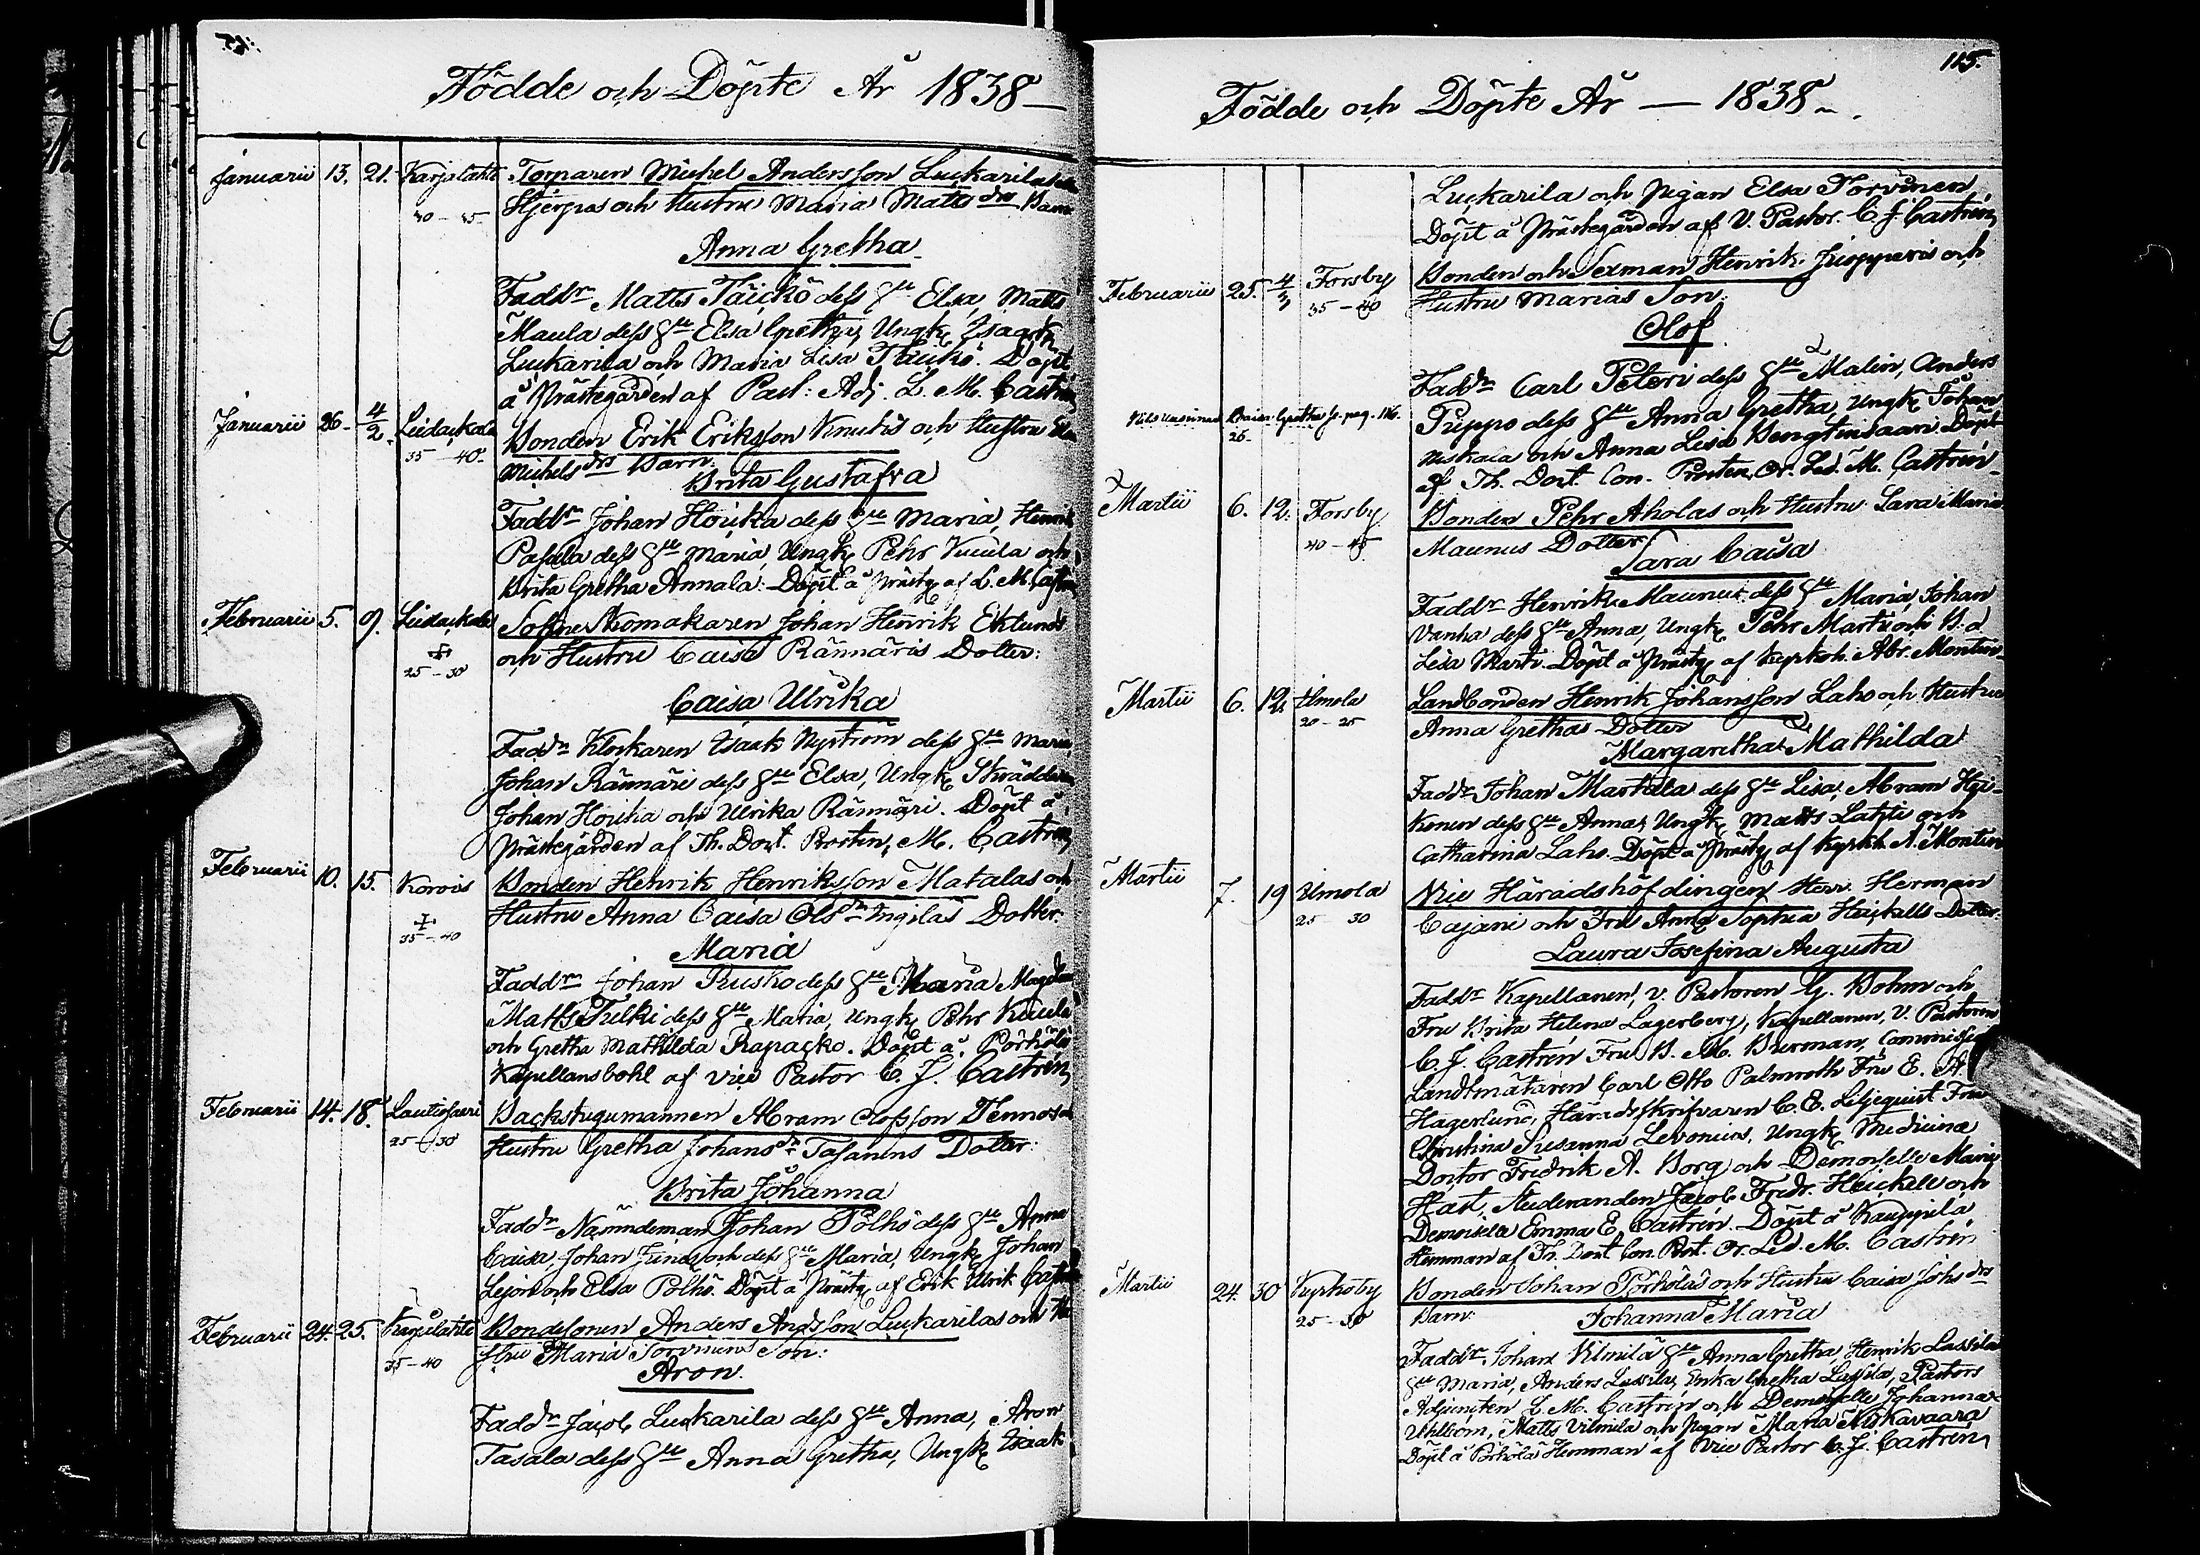 Födde och Döpte År 1838
Januarii 13. 21. Karjalahti Torparen Michel Andersson Luckarila
30 – 35 Hjerpas och Hustru Maria Matts drs Barn
Anna Gretha
Faddr Matts Täickö dess Hu Elsa, Matts
Maula dess Hu Elsa Gretha, Ungk Isaack
Luckarila och Maria Lisa Täickö. Döpt
å Prästegården af Past: Adj. L. M. Castrén
Januarii 26 4/2 Liedackala Bonden Erik Eriksson Knutis och Hustru
35 – 40 Michels drs Barn.
Brita Gustafva
Faddr Johan Houka dess Hu Maria, Henrik
Pasula dess Hu Maria, Ungk Pehr Kuula och
Brita Gretha Annala. Döpt å Prästg af L. M. Castrén
Februarii 5. 9. Liedackala Sockne Skomakaren Johan Henrik Eklunds
25 – 30 och Hustru Caisa Rännäris Dotter:
Caisa Ulrika
Faddr Klockaren Isaak Nyström dess Hu Maria
Johan Rännäri dess Hu Elsa, Ungk Skräddaren
Johan Houka och Ulrika Rännäri. Döpt å
Prästegården af Th. Doct. Prosten, M. Castrén
Februarii 10. 15. Korois Bonden Henrik Henriksson Matalas och
35 – 40 Hustru Anna Caisa Olsdr Ingilas Dotter:
Maria
Faddr Johan Ruisko dess Hu Maria Magdalena
Matts Tulki dess Hu Maria, Ungk Pehr Kuula
och Gretha Mathilda Rapacko. Döpt å Pörhölä
Kapellansbohl af vice Pastor C. J. Castrén
Februarii 14. 18. Lautiosaari Backstugumannen Abram Olofsson Tennos och
25 – 30 Hustru Gretha Johansdr Tasanens Dotter:
Brita Johanna
Faddr Nämndeman Johan Pölhö dess Hu Anna
Caisa, Johan Junes och dess Hu Maria, Ungk Johan
Lejon och Elsa Pölhö. Döpt å Prästg af Erik Ulrik Castrén
Februarii 24. 25. Karjalahti Bondesonen Anders Andsson Luckarilas och Hu
35 – 40 stru Maria Torvinens Son:
Aron
Faddr Jacob Luckarila dess Hu Anna, Aron
Tasala dess Hu Anna Gretha, Ungk Isaak
115.
Födde och Döpte År — 1838
Luckarila och Pigan Elsa Torvinen,
Döpt å Prästegården af V. Pastor. C. J. Castrén
Februarii 25. 4/3 Forsby Bonden och Sexman Henrik Juopperis och
35 – 40 Hustru Marias Son:
Olof
Faddr Carl Peteri dess Hu Malin, Anders
Puppo dess Hu Anna Gretha, Ungk Johan
Niskala och Anna Lisa Bengtinsaari Döpt
af Th. Doct. Con. Prosten, Or. Led. M. Castrén
Martii 6. 12. Forsby Bonden Pehr Aholas och Hustru Sara Maria
40 – 45 Maunus Dotter
Sara Caisa
Faddr Henrik Maunu dess Hu Maria, Johan
Vanha dess Hu Anna, Ungk Pehr Martti och B. d
Lisa Martti. Döpt å Prästg af Kyrkoh. Abr. Montin
Martii 6. 12. Ilmola Landbonden Henrik Johansson Laho och Hustru
20 – 25 Anna Grethas Dotter
Margaretha Mathilda
Faddr Johan Markkala dess Hu Lisa, Abram Hei-
konen dess Hu Anna, Ungk Matts Lahti och
Catharina Laho. Döpt å Prästg af Kyrkh. A. Montin
Martii 7. 19 Ilmola Vice Häradshöfdingen Herr Herman
25 30 Cajani och Fru Anna Sophia Heickells Dotter
Laura Josefina Augusta
Faddr Kapellanen, v. Pastoren G. Bohm och
Fru Brita Helena Lagerberg, Kapellanen, V. Pastoren
C. J. Castrén Fru B. M. Burman, Commissions
Landtmätaren Carl Otto Palmroth Fru E. A
Hagerlund, Häradsskrifvaren C. E. Liljequist Fru
Christina Susanna Levonius, Ungk Medicinæ
Doctor Fredrik A. Borg och Demoiselle Maria
Hast, Studeranden Jacob Fredr. Heickell och
Demoiselle Emma E. Castrén. Döpt å Kauppila
Hemman af Th. Doct. Con. Pvst. Or. Led. M. Castrén
Martii 24. 30 Kyrkoby Bonden Johan Pörhölas och Hustru Caisa Johs drs
25 – 30 Barn
Johanna Maria
Faddr Johan Vilmilä Hu Anna Gretha, Henrik Lassila
Hu Maria, Anders Lassila, Erika Gretha Lassila, Pastors
Adjuncten L. M. Castrén och Demoiselle Johanna
Uhlbom, Matts Vilmila och Pigan Maria Niskavaara
Döpt å Pörhölä Hemman af Vice Pastor C. J. Castrén